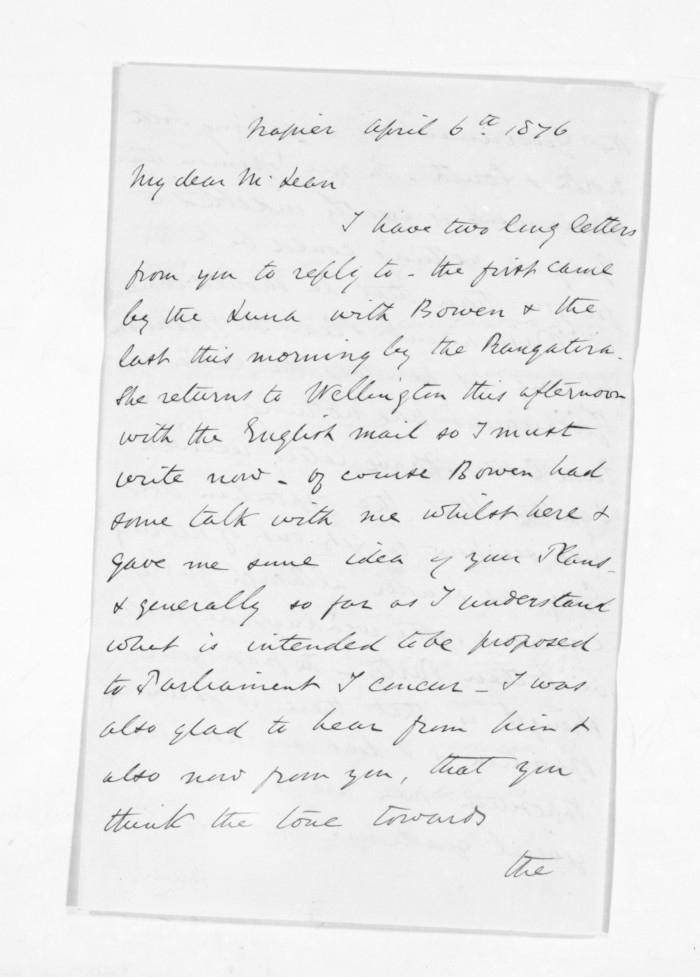 Napier April 6th. 1876
My dear McLean
I have two long letters
from you to reply to - the first came
by the Luna with Bowen & the
last this morning by the Rangatira.
She returns to Wellington this afternoon
with the English mail so I must
write now - of course Bowen had
some talk with me whilst here &
gave me some idea of your Plans -
& generally so far as I understand
what is intended to be proposed
to Parliament I concur - I was
also glad to hear from him &
also now from you, that you
think the tone towards
the